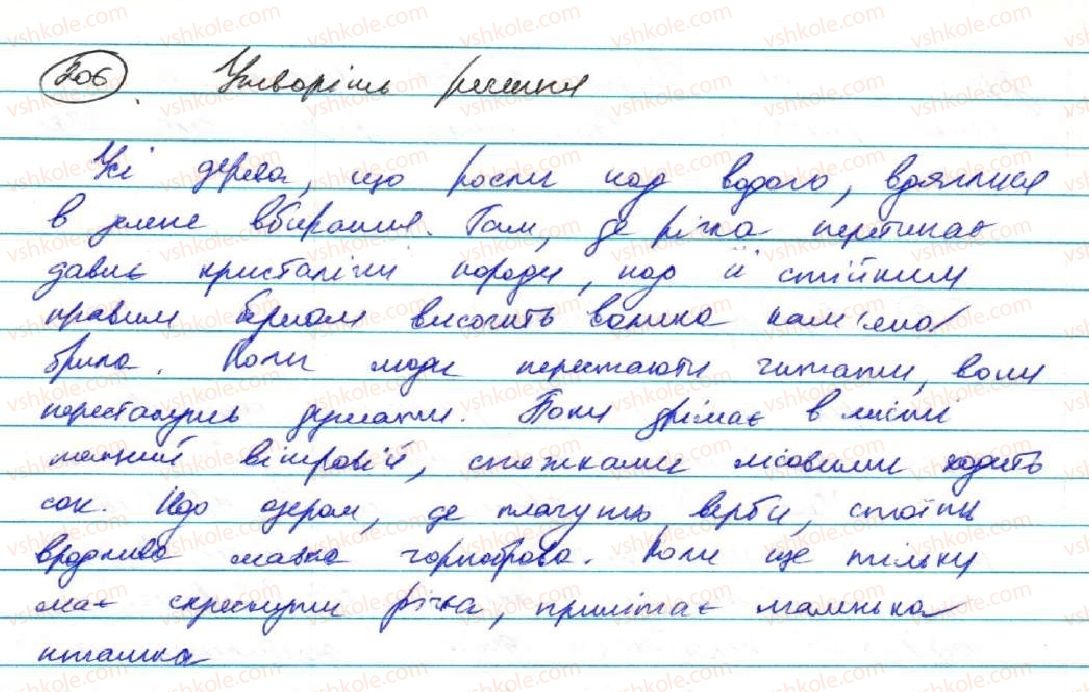 206. Утворіть речення
Усі дерева, що росли над водою, вдяглися
в зелене вбирання. Там, де річка перетинає
давнє кристалічні породи, над її стійким
правим берегом височить велика кам'яна
брила. Коли люди перестають читати, вони
перестануть думати. Поки дрімає в листі
темний вітровій, стежками лісовими ходить
сон. Над озером, де плачуть верби, стоїть
вродлива мавка чорноброва. Коли ще тільки
має скреснути річка, прилітає маленька
пташка